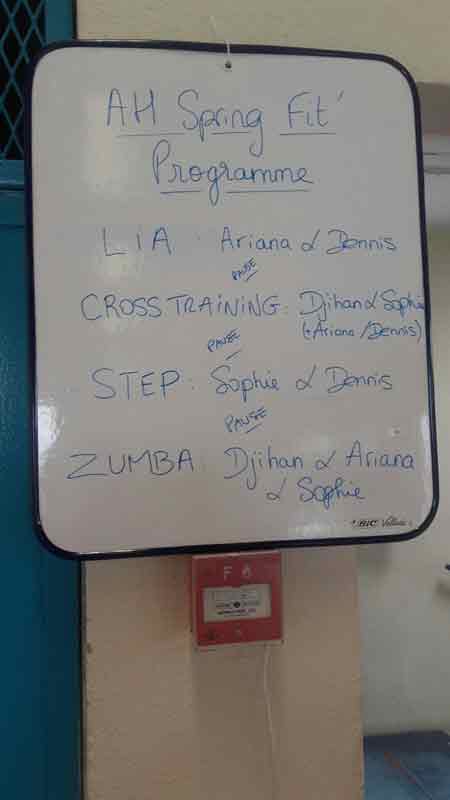 AH Spring Fit'
Programme
LIA : Ariana & Dennis
PAUSE
CROSS TRAINING : Djihan & Sophie
(+Ariana/Dennis)
PAUSE
STEP : Sophie & Dennis
PAUSE
ZUMBA : Djihan & Ariana
& Sophie
BIC Velleda
F